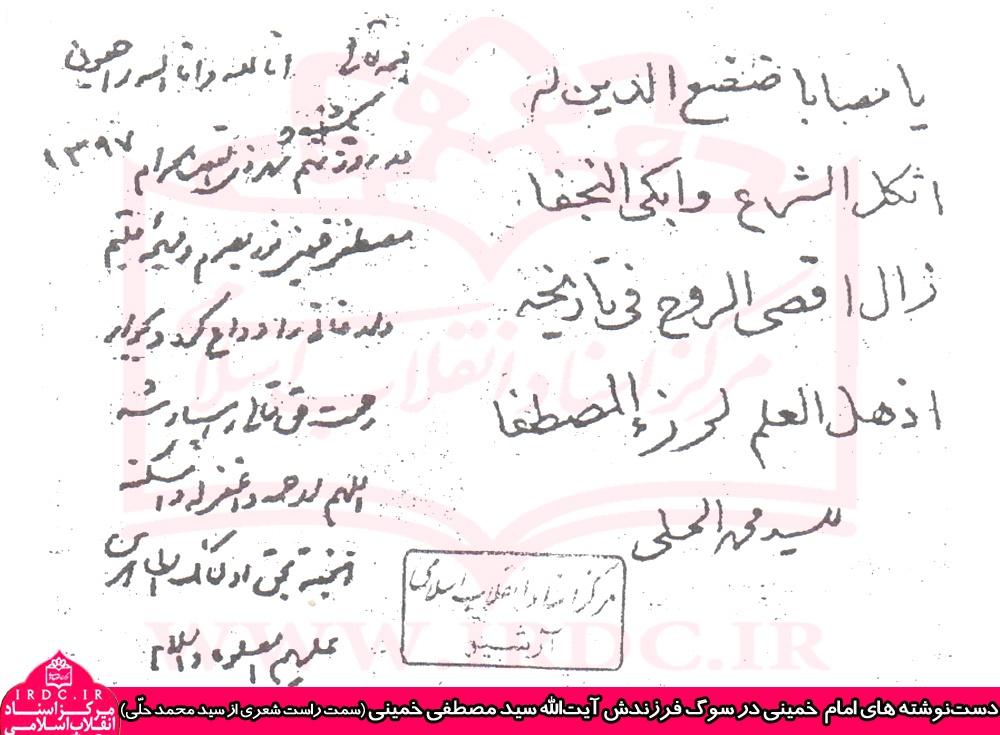 يا مصابا ضعضع الدين له
اثكل الشرع وابكى النجفا
زال اقصى الروح في تاريخه
اذهل العلم لرزء المصطفا
للسيد محمد الحلي
بسمه تعالی انا لله و انا الیه راجعون
در روز یکشنبه نهم شهر ذی القعدة الحرام ۱۳۹۷
مصطفی خمینی نور بصرم و
دار فانی را وداع کرد و بجوار
رحمت حق تعالی رهسپار شد
اللهم ارحمه و اغفر له و اسکنه
الجنة بحق اولیائک الطاهرین
علیهم الصلوة و السلام
مرکز اسناد انقلاب اسلامی
آرشیو
مرکز اسناد انقلاب اسلامی
WWW.IRDC.IR
IRDC.IR
مرکز اسناد
انقلاب اسلامی
دست‌نوشته های امام خمینی در سوگ فرزندش آیت‌الله سید مصطفی خمینی (سمت راست شعری از سید محمد حلّی)